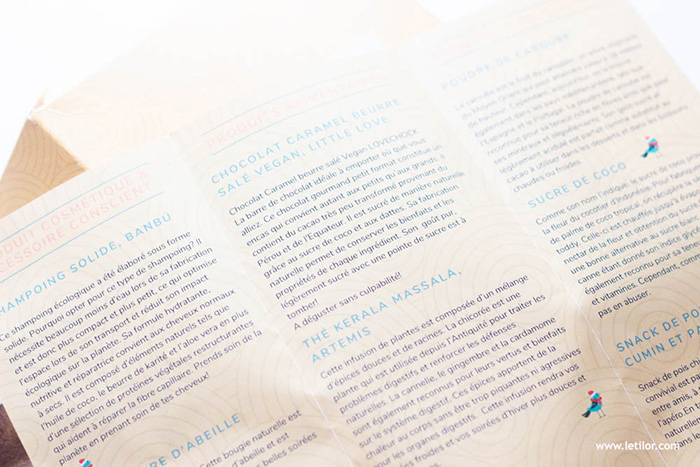 PRODUIT COSMÉTIQUE &
ACCESSOIRE CONSCIENT
SHAMPOING SOLIDE, BANBU
Ce shampoing écologique a été élaboré sous forme
solide. Pourquoi opter pour ce type de shampoing? Il
nécessite beaucoup moins d'eau lors de sa fabrication
et est donc plus compact et plus petit, ce qui optimise
l'espace lors de son transport et réduit son impact
écologique sur la planète. Sa formule hydratante,
nutritive et réparatrice convient aux cheveux normaux
à secs. Il est composé d'éléments naturels tels que
l'huile de coco, le beurre de karité et l'aloe vera en plus
d'une sélection de protéines végétales restructurantes
qui aident à réparer la fibre capillaire. Prends soin de la
planète en prenant soin de tes cheveux!
RE D'ABEILLE
Cette bougie naturelle est
d'abeille et est
belles soirées
PRODUITS ALIMENTAIRES
CHOCOLAT CARAMEL BEURRE
SALÉ VEGAN, LITTLE LOVE
Chocolat Caramel beurre salé Vegan LOVECHOCK
La barre de chocolat idéale à emporter où que vous
alliez. Ce chocolat gourmand petit format constitue un
encas qui convient autant aux petits qu'aux grands. Il
contient du cacao très peu transformé provenant du
Pérou et de l'Equateur. Il est sucré de manière naturelle
grâce au sucre de coco et aux dattes. Sa fabrication
naturelle permet de conserver les bienfaits et les
propriétés de chaque ingrédient. Son goût pur,
légèrement sucré avec une pointe de sucre est à
tomber!
A déguster sans culpabilité!
THÉ KERALA MASSALA,
ARTEMIS
Cette infusion de plantes est composée d'un mélange
d'épices douces et de racines. La chicorée est une
plante qui est utilisée depuis l'Antiquité pour traiter les
problèmes digestifs et renforcer les défenses
naturelles. La cannelle, le gingembre et la cardamome
sont également reconnus pour leurs vertus et bienfaits
sur le système digestif. Ces épices apportent de la
chaleur au corps sans être trop piquantes ni agressives
pour les organes digestifs. Cette infusion rendra vos
froides et vos soirées d'hiver plus douces et
POUDRE DE CAROUBE
La caroube est le fruit du caroubier, un arbre
du Moyen
de hauteur. Cependant, aujourd'hui, on le trouve
également dans les pays méditerranéens, tels que
l'Espagne et le Portugal. La poudre de caroube est
reconnue pour sa teneur riche en fibres ainsi que pour
ses minéraux et oligoéléments. Son goût sucré et
légèrement acidulé est parfait comme substitut au
cacao à utiliser dans les desserts et dans les boissons
chaudes ou froides.
SUCRE DE COCO
Comme son nom l'indique, le sucre de coco
la fleur du cocotier d'Indonésie. Pour
de palme de coco tropical, on récupère
toddy. Celle-ci est chauffée jusqu'à
nectar de la fleur et obtention du
une bonne alternative au sucre
canne étant donné son indice
également reconnu pour sa
et vitamines. Cependant, comme
pas en abuser.
SNACK DE PO
CUMIN ET P
Snack de pois
convivial est
entre amis, à
l'apéro
naturellement
www.letilor.com